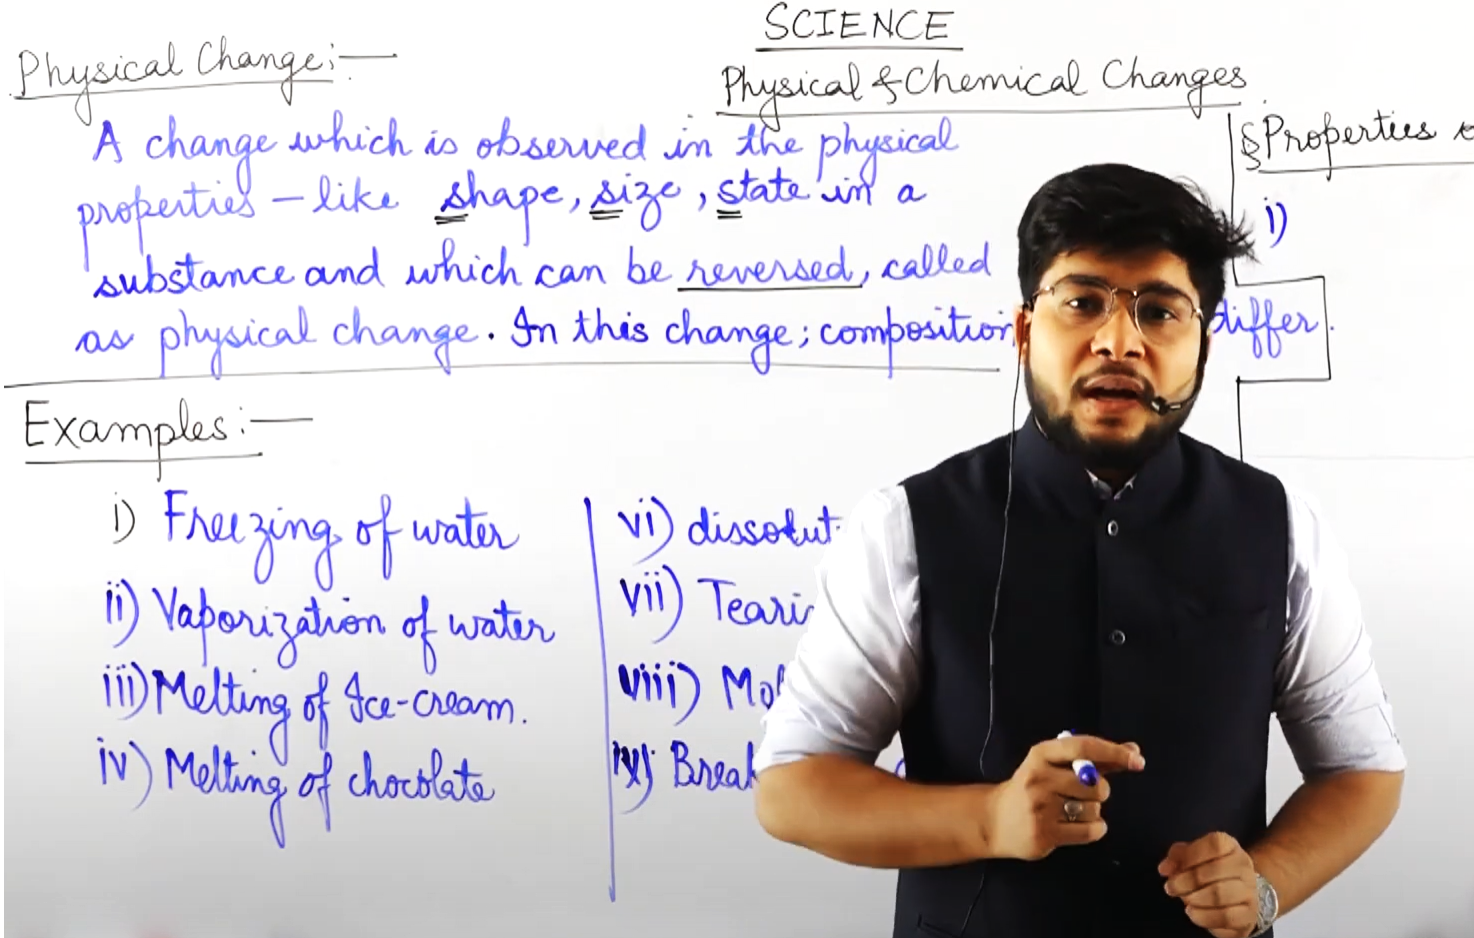 SCIENCE
Physical & Chemical Changes
Physical Change:—
A change which is observed in the physical
properties – like shape, size, state in a
substance and which can be reversed, called
as physical change. In this change; composition differ.
Examples:—
i) Freezing of water
ii) Vaporization of water
iii) Melting of Ice-cream.
iv) Melting of chocolate
vi)
vii)
viii)
ix)
§ Properties
i)